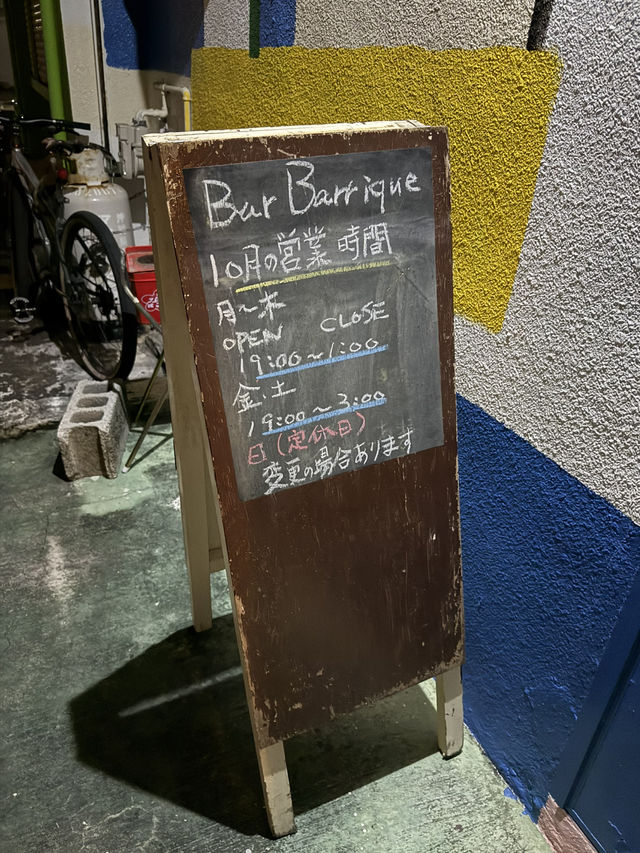 Bar Barrique
10月の営業時間
月〜木
OPEN CLOSE
19:00〜1:00
金・土
19:00〜3:00
日(定休日)
変更の場合あります